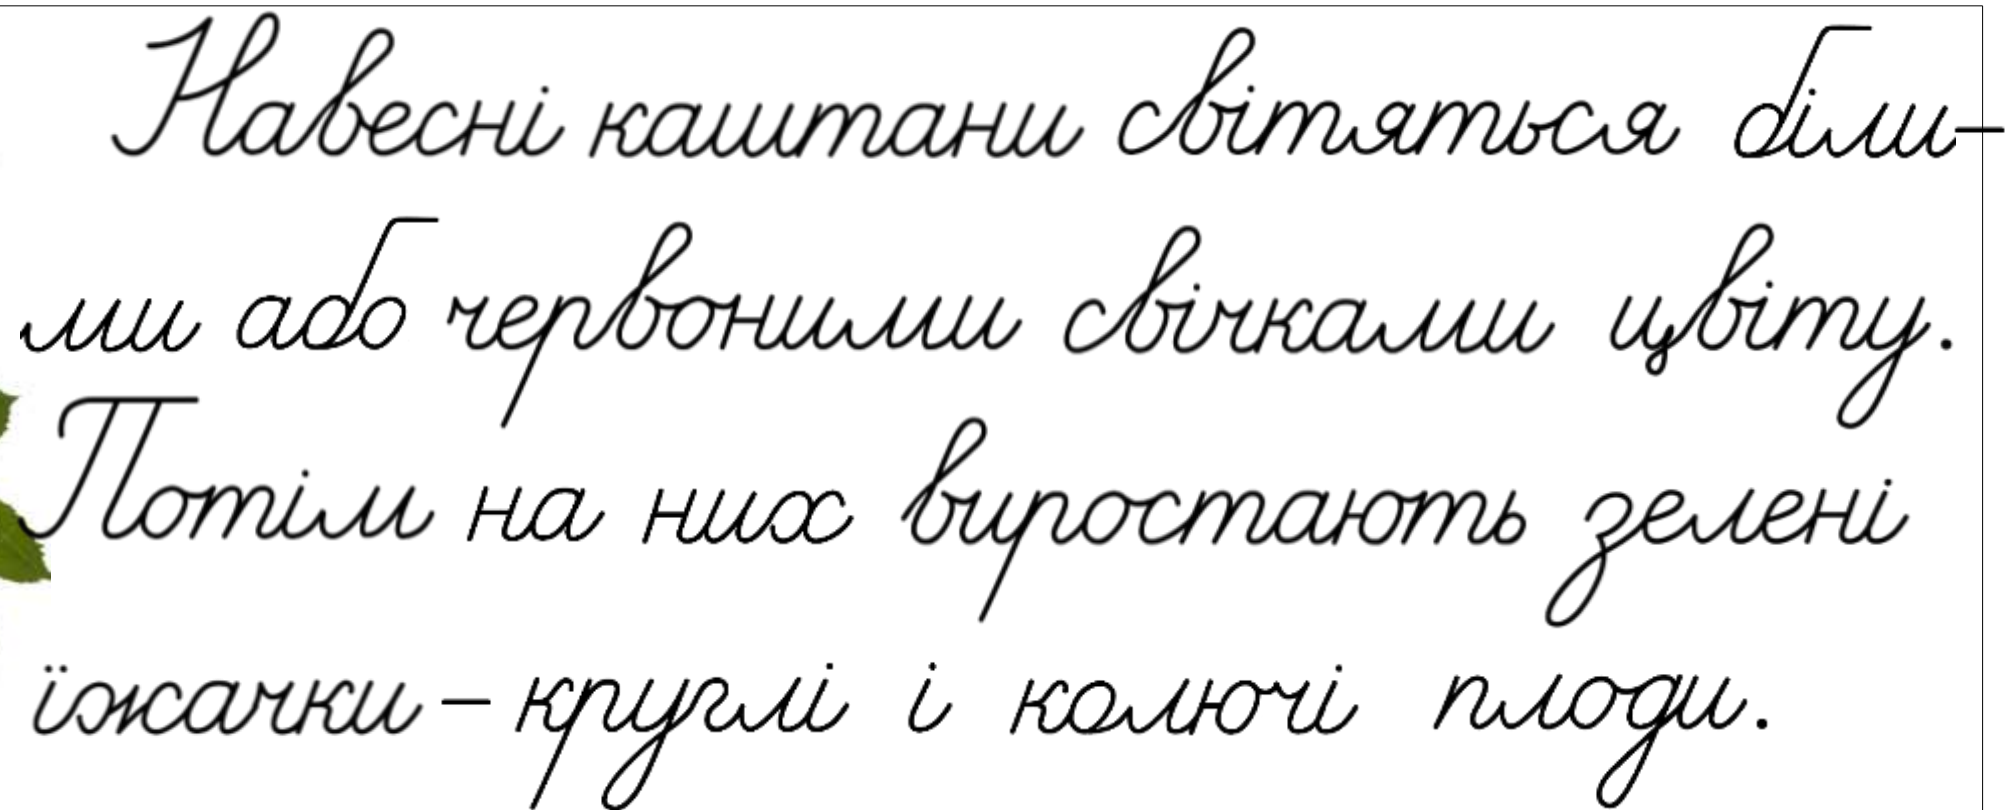 Навесні каштани світяться біли-
ми або червоними свічками цвіту.
Потім на них виростають зелені
їжачки – круглі і колючі плоди.